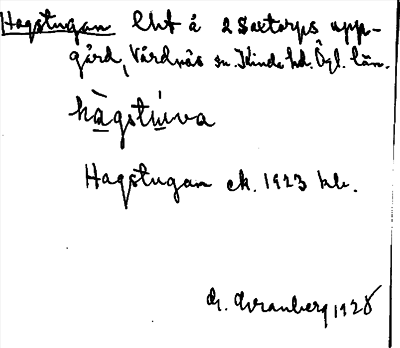 Hagstugan lht å 2 Saxtorps upp-
gård, Vårdnäs sn. Kinda hd. Ögl. län.
hàgstùva
Hagstugan ek. 1923 kb.
Granberg 1928